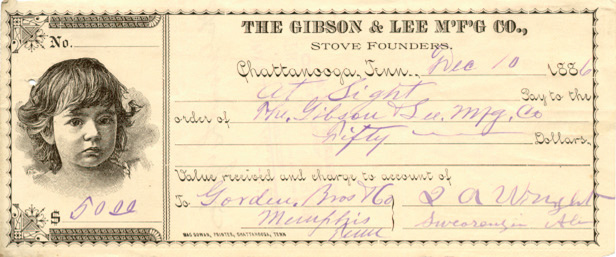 THE GIBSON & LEE M'F'G CO.,
STOVE FOUNDERS.
No.
Chattanooga, Tenn., Dec 10 1886
At Sight Pay to the
order of The Gibson & Lee Mfg. Co
Fifty Dollars,
Value received and charge to account of
To Gorden, Bros & Co
Memphis
Tenn
Wright
Ala
$ 50 00
MAC GOWAN, PRINTER, CHATTANOOGA, TENN